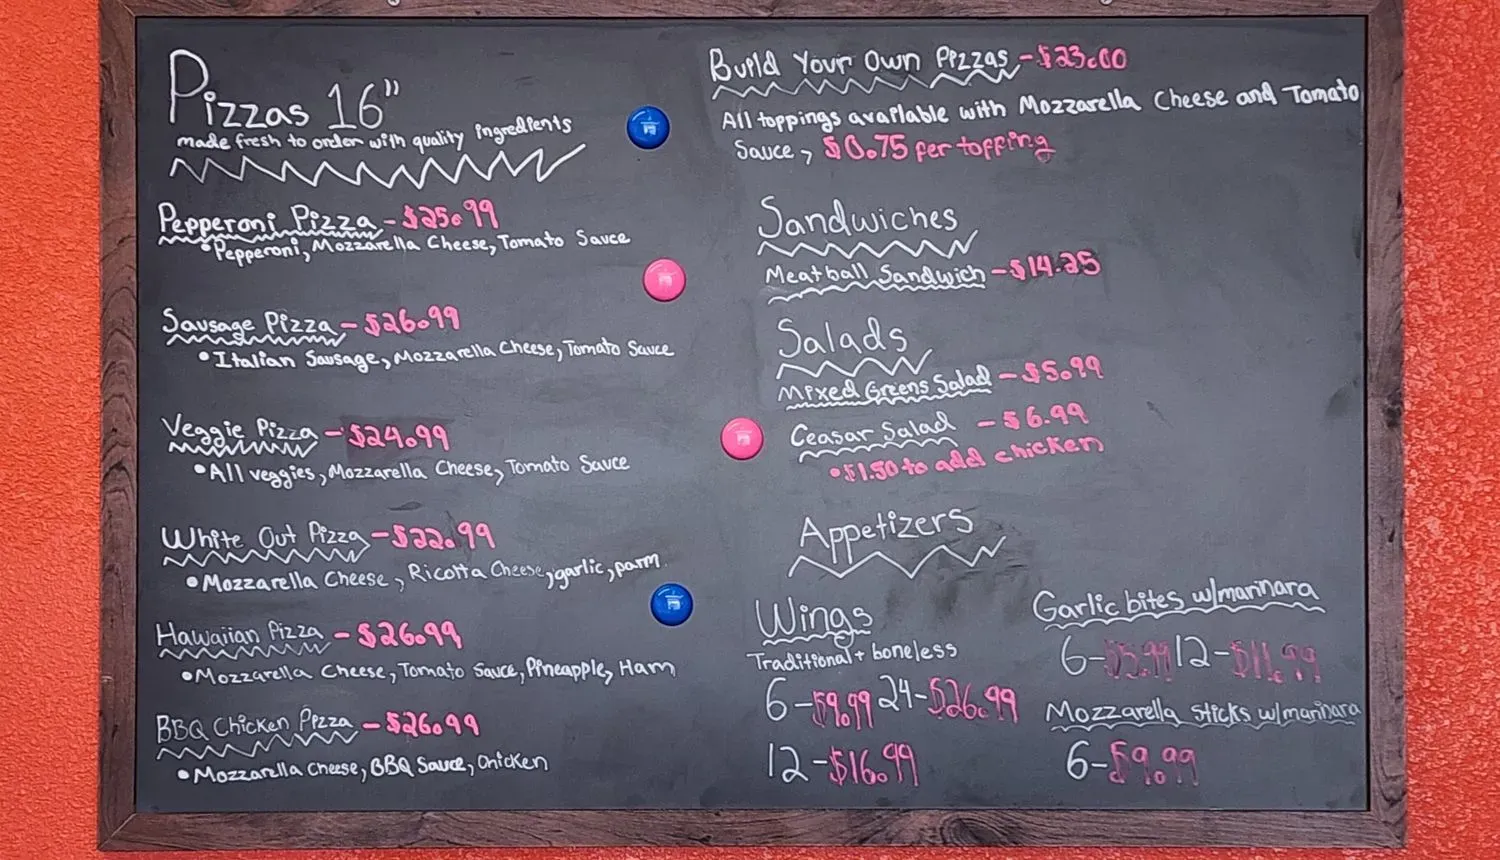 Pizzas 16"
made fresh to order with quality ingredients
Pepperoni Pizza - $25.99
• Pepperoni, Mozzarella Cheese, Tomato Sauce
Sausage Pizza - $26.99
• Italian Sausage, Mozzarella Cheese, Tomato Sauce
Veggie Pizza - $24.99
• All veggies, Mozzarella Cheese, Tomato Sauce
White Out Pizza - $22.99
• Mozzarella Cheese, Ricotta Cheese, garlic, parm
Hawaiian Pizza - $26.99
• Mozzarella Cheese, Tomato Sauce, Pineapple, Ham
BBQ Chicken Pizza - $26.99
• Mozzarella Cheese, BBQ Sauce, Chicken
Build Your Own Pizzas - $23.00
All toppings available with Mozzarella Cheese and Tomato
Sauce, $0.75 per topping
Sandwiches
Meatball Sandwich - $14.25
Salads
Mixed Greens Salad - $5.99
Ceasar Salad - $6.99
• $1.50 to add chicken
Appetizers
Wings
Traditional + boneless
6 - $9.99 24 - $26.99
12 - $16.99
Garlic bites w/marinara
6 - $5.99 12 - $11.99
Mozzarella sticks w/marinara
6 - $9.99